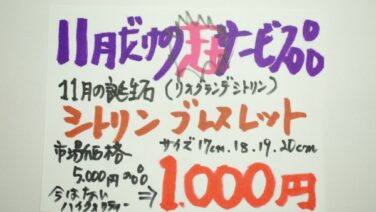 11月だけの超サービス品
11月の誕生石（リオグランデシトリン）
シトリン ブレスレット
市場価格 サイズ17cm.18.19.20cm
5,000円の品 ⇒ 1.000円
今はない
ハイクオリティー